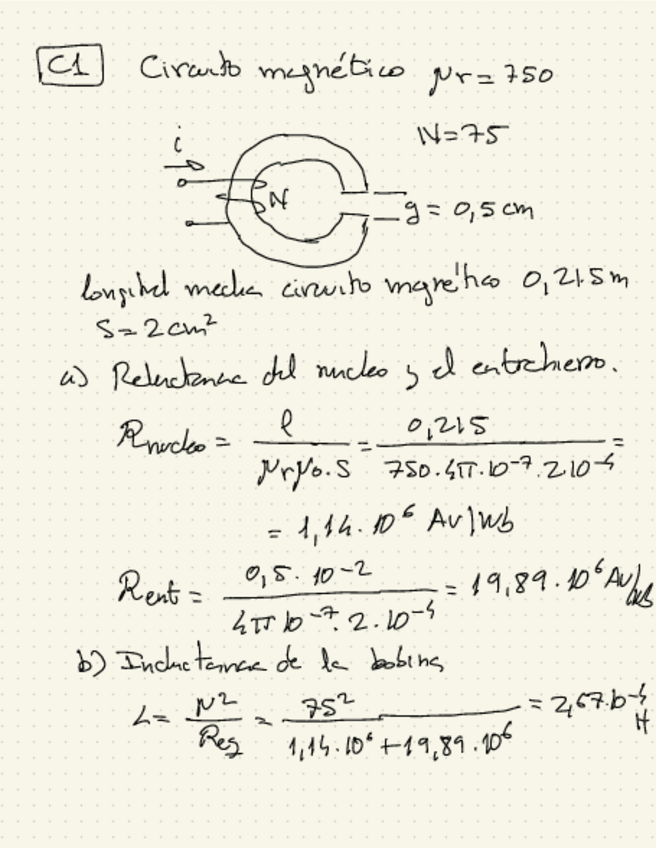 C1 Circuito magnético μr = 750
N = 75
i
N
g = 0,5 cm
longitud media circuito magnético 0,215 m
S = 2 cm²
a) Reluctancia del nucleo y el entrehierro.
Rnucleo = l / μr μo . S = 0,215 / 750 . 4π . 10⁻⁷ . 2 10⁻⁴ =
= 1,14 . 10⁶ Av/Wb
Rent = 0,5 . 10⁻² / 4π 10⁻⁷ . 2 . 10⁻⁴ = 19,89 . 10⁶ Av/Wb
b) Inductancia de la bobina
L = N² / Req = 75² / 1,14 . 10⁶ + 19,89 . 10⁶ = 2,67 . 10⁻⁴ H